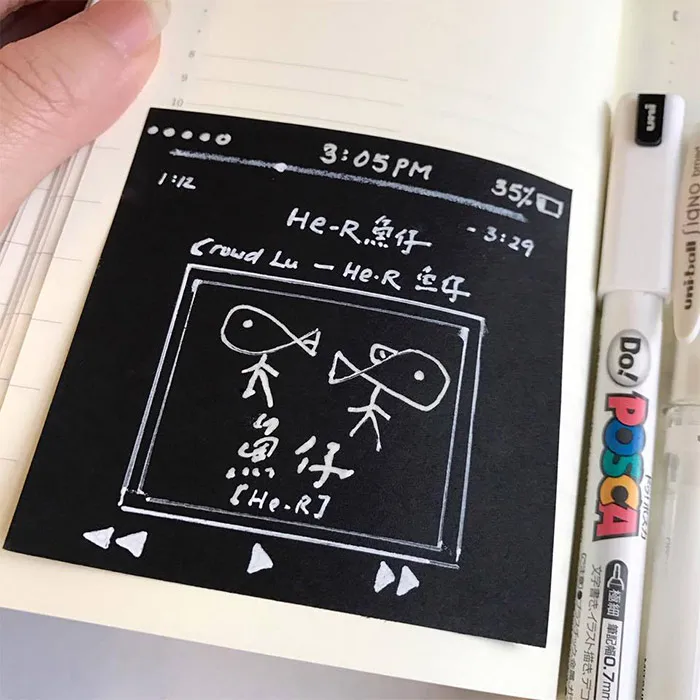 8
9
10
3:05PM
35%
1:12
-3:29
He-R 魚仔
Crowd Lu — He-R 魚仔
魚仔
[He-R]
uni
Do!
POSCA
極細
筆記幅0.7mm
文字書き、イラスト描き、デコ
uni-ball